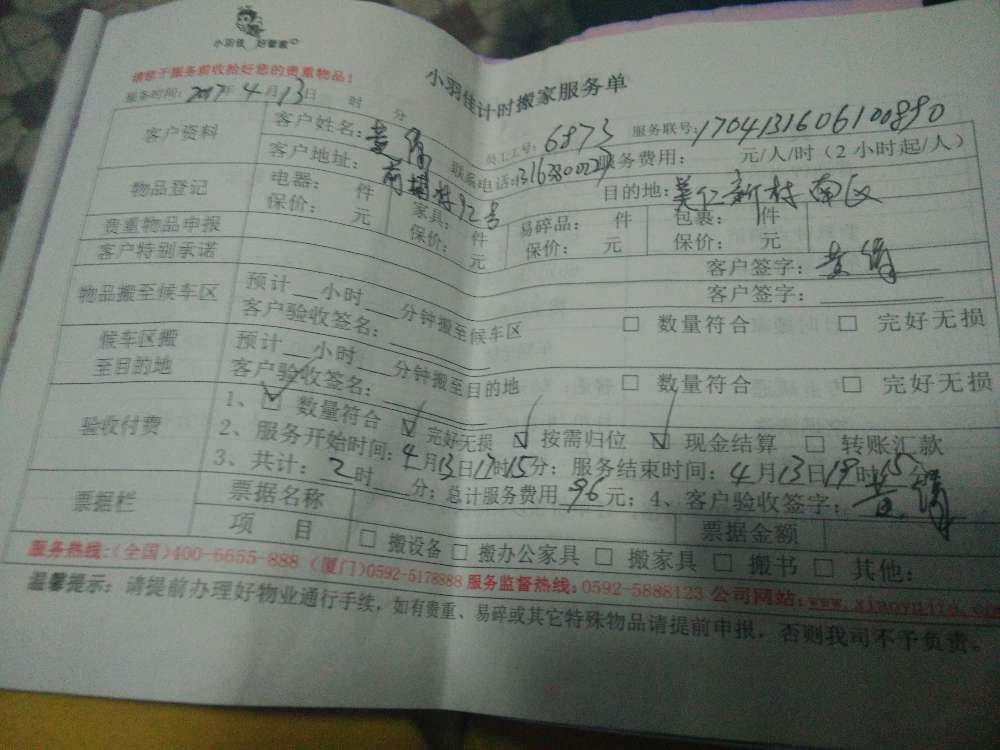 小羽佳 好管家
请您于服务前收拾好您的贵重物品!
小羽佳计时搬家服务单
服务时间: 2017年 4月 13日 时 分
员工工号: 6873 服务联号: 1704131606100890
客户资料 客户姓名: 黄 联系电话: 服务费用: 元/人/时(2小时起/人)
客户地址: 前埔村92号 目的地: 美仁新村南区
物品登记 电器: 件 家具: 件 易碎品: 件 包裹: 件
保价: 元 保价: 元 保价: 元 保价: 元
贵重物品申报 客户签字: 黄
客户特别承诺 客户签字:
物品搬至候车区 预计__小时__分钟搬至候车区 □ 数量符合 □ 完好无损
客户验收签名:
候车区搬至目的地 预计__小时__分钟搬至目的地 □ 数量符合 □ 完好无损
客户验收签名:
验收付费 1、☑ 数量符合 ☑ 完好无损 ☑ 按需归位 ☑ 现金结算 □ 转账汇款
2、服务开始时间: 4月13日17时15分; 服务结束时间: 4月13日19时15分
3、共计: 2时__分; 总计服务费用 96元; 4、客户验收签字: 黄
票据栏 票据名称 票据金额
项 目 □ 搬设备 □ 搬办公家具 □ 搬家具 □ 搬书 □ 其他:
服务热线:(全国)400-6655-888 (厦门)0592-5178888 服务监督热线:0592-5888123 公司网站:
温馨提示: 请提前办理好物业通行手续,如有贵重、易碎或其它特殊物品请提前申报,否则我司不予负责。